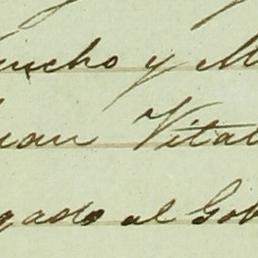 ucho y M
uan Vital
gado al Gob